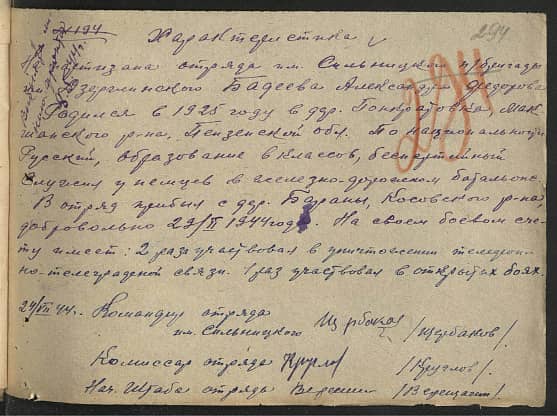 294
294
Характеристика
партизана отряда им. Сильницкого п/бригады
Дзержинского Бадеева Александра Федоров
Родился в 1925 году в дер. Панкратовка, Мак
шанского р-на, Пензенской обл. По национальности
Русский, образование 4 классов, беспартийный
Служил у немцев в железно-дорожном батальоне.
В отряд прибыл с дер. Бараны, Косовского р-на,
добровольно 29/II 1944 года. На своем боевом сче-
ту имеет: 2 раза участвовал в уничтожении телефон-
но-телеграфной связи. 1 раз участвовал в открытых боях.
24/VII 44г. Командир отряда
им. Сильницкого /Щербаков/
Комиссар отряда /Круглов/
Нач. Штаба отряда /Верещагин/